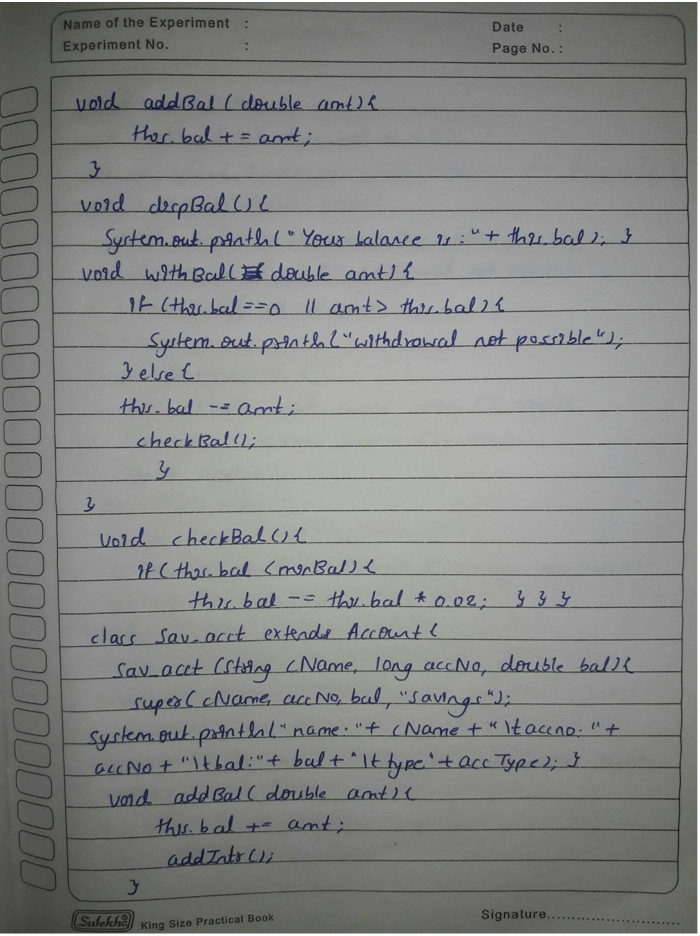 Name of the Experiment :
Date :
Experiment No. :
Page No. :
void addBal (double amt){
this.bal += amt;
}
void dispBal(){
System.out.println("Your balance is :"+ this.bal); }
void withBal( double amt) {
if (this.bal==0 || amt> this.bal){
System.out.println("withdrawal not possible");
} else {
this.bal -= amt;
checkBal();
}
}
void checkBal(){
if (this.bal <minBal){
this.bal -= this.bal * 0.02; } } }
class Sav_acct extends Account{
Sav_acct (String cName, long accNo, double bal){
super( cName, accNo, bal, "savings");
System.out.println("name:"+ cName + "\taccno:"+
accNo + "\tbal:"+ bal + "\t type"+ accType); }
void addBal( double amt){
this.bal += amt;
addIntr();
}
Sulekha King Size Practical Book
Signature..............................